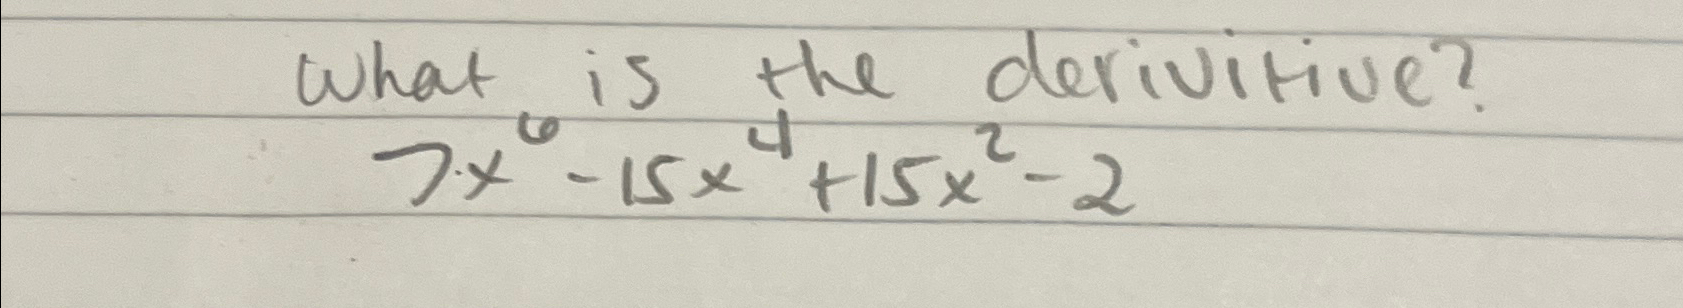 What is the derivitive?
7x⁶ - 15x⁴ + 15x² - 2